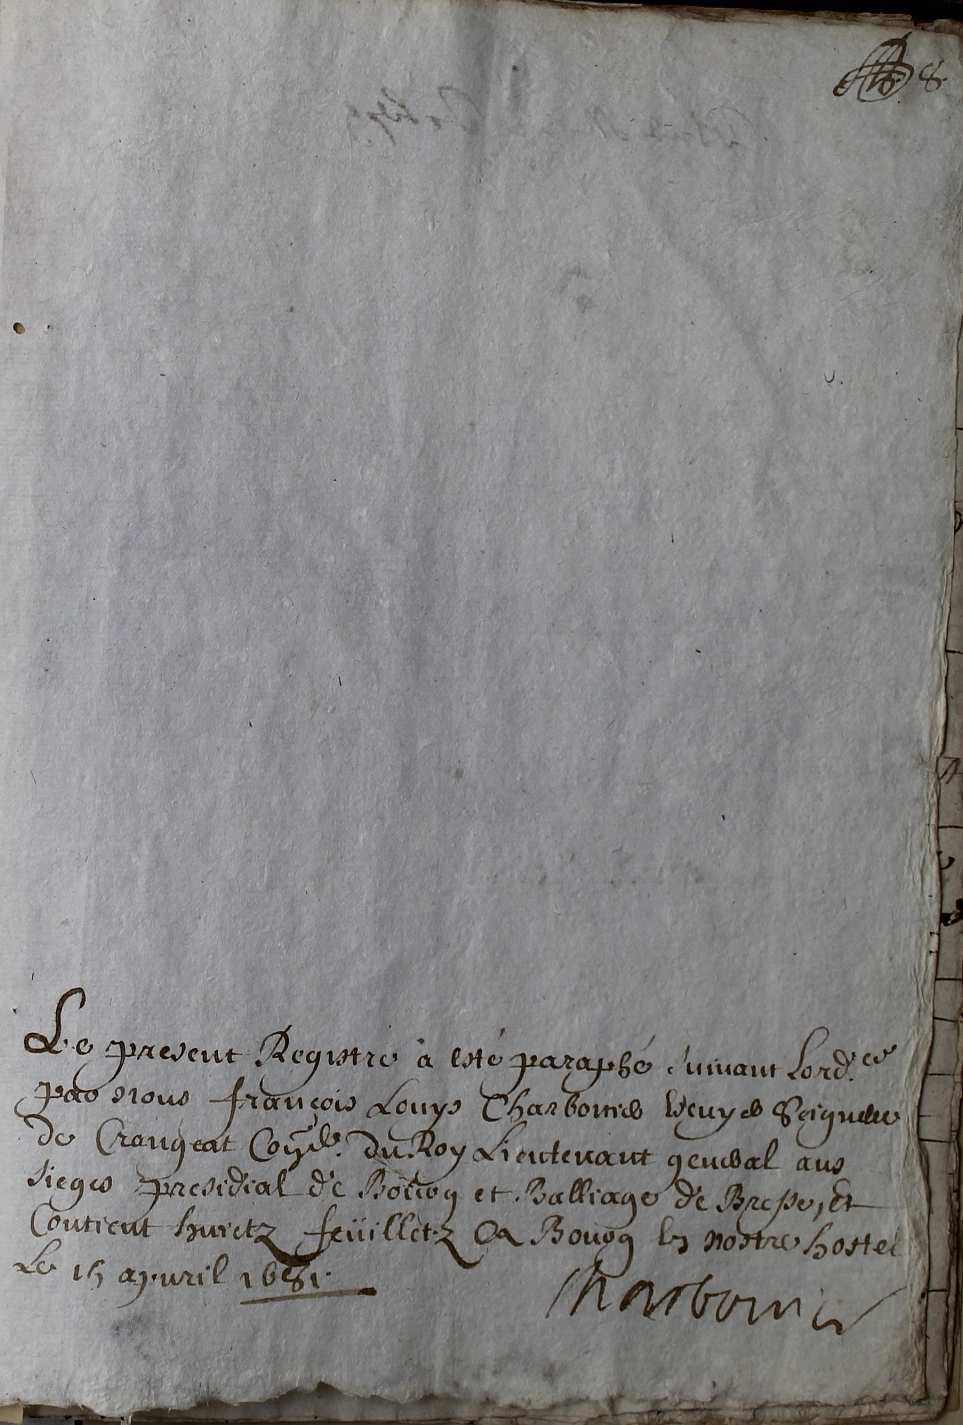 8.
Le present Registre à esté paraphé suivant Lord.ce
par nous françois Louys Charbonier Escuyer Seigneur
de Crangeat Con.er du Roy Lieutenant general aus
sieges presidial de Bourg et Balliage de Bresse, Et
Contient huietz feüilletz A Bourg En nostre hostel
Le 15 apvril 1681.
Charbonier